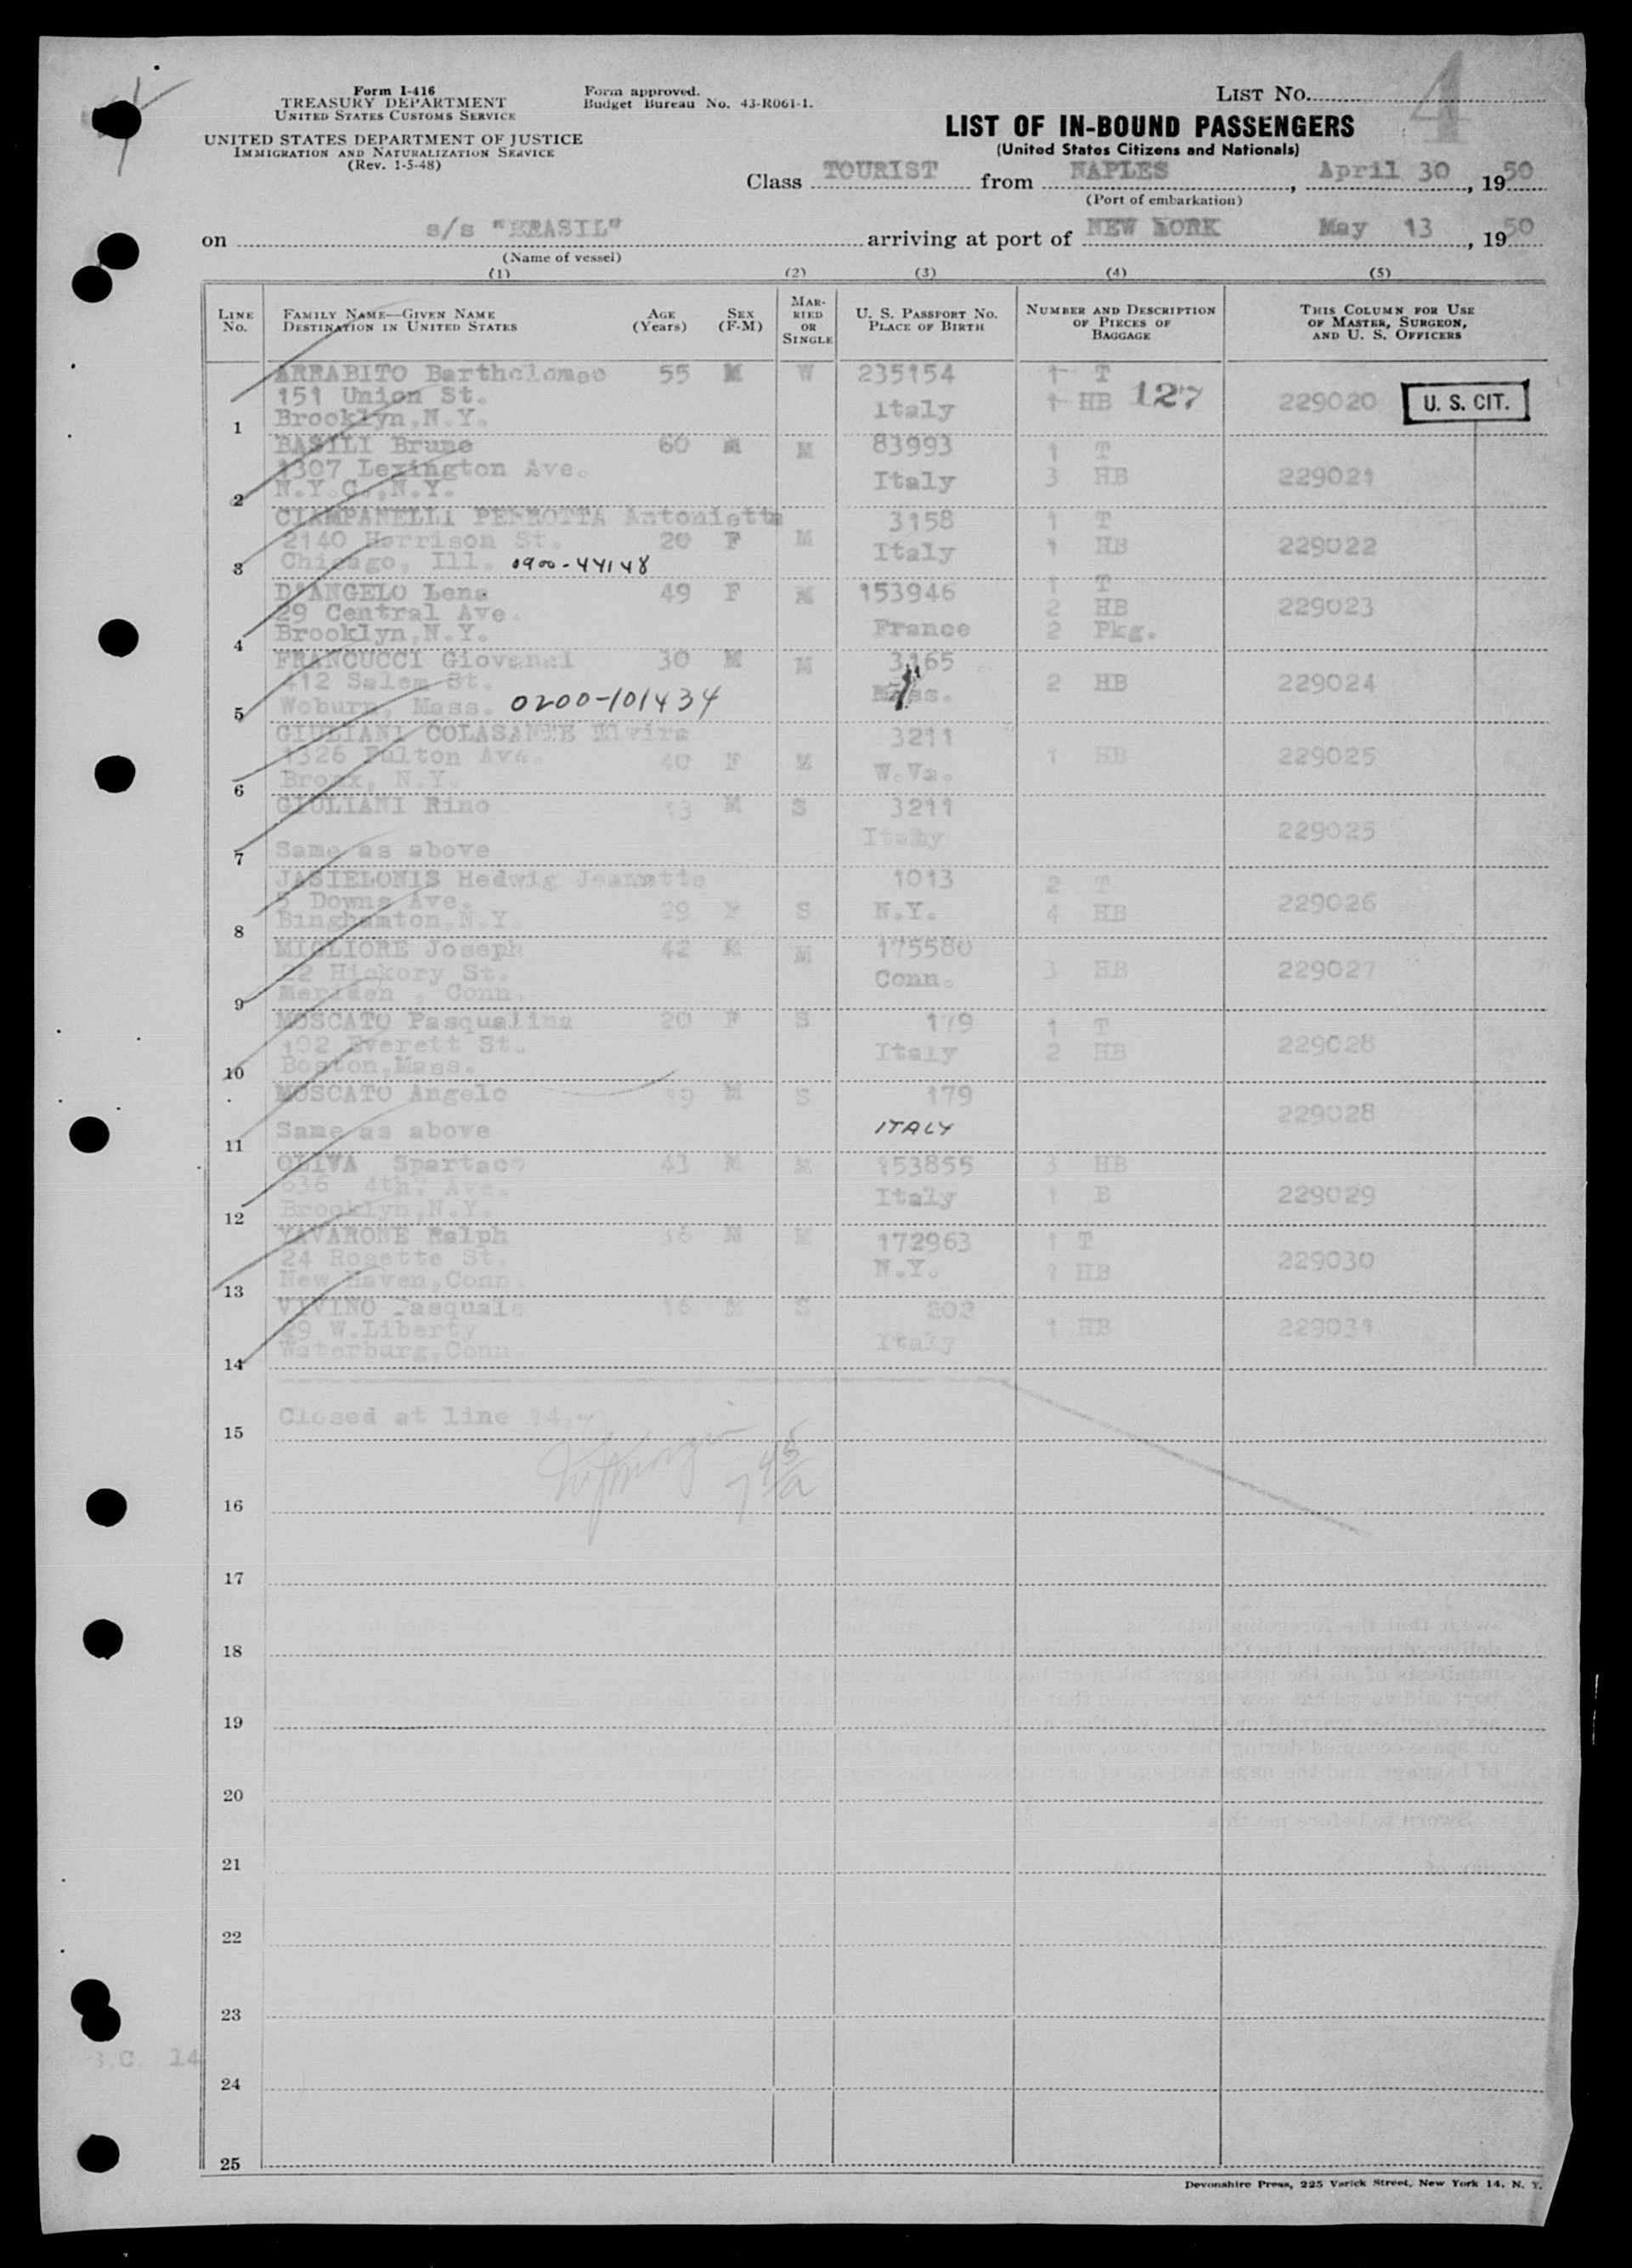 Form I-416
TREASURY DEPARTMENT
UNITED STATES CUSTOMS SERVICE
UNITED STATES DEPARTMENT OF JUSTICE
IMMIGRATION AND NATURALIZATION SERVICE
(Rev. 1-5-48)
Form approved.
Budget Bureau No. 43-R061-1.
LIST NO. 4
LIST OF IN-BOUND PASSENGERS
(United States Citizens and Nationals)
Class TOURIST from NAPLES, April 30, 1950
(Port of embarkation)
on s/s "BRASIL" arriving at port of NEW YORK May 13, 1950
(Name of vessel)
(1) (2) (3) (4) (5)
LINE NO. FAMILY NAME—GIVEN NAME DESTINATION IN UNITED STATES AGE (Years) SEX (F-M) MARRIED OR SINGLE U. S. PASSPORT NO. PLACE OF BIRTH NUMBER AND DESCRIPTION OF PIECES OF BAGGAGE THIS COLUMN FOR USE OF MASTER, SURGEON, AND U. S. OFFICERS
ARRABITO Bartholomeo 55 M W 235154 1 T
151 Union St. Italy 1 HB 127 229020 U. S. CIT.
1 Brooklyn,N.Y.
BASILI Bruno 60 M M 83993 1 T
1307 Lexington Ave. Italy 3 HB 229021
2 N.Y.C.,N.Y.
CIAMPANELLI PERROTTA Antonietta 3158 1 T
2140 Harrison St. 20 F M Italy 1 HB 229022
3 Chicago, Ill. 0900-44148
D'ANGELO Lena 49 F M 153946 1 T
29 Central Ave. 2 HB 229023
4 Brooklyn,N.Y. France 2 Pkg.
FRANCUCCI Giovanni 30 M M 3165
412 Salem St. Mass. 2 HB 229024
5 Woburn, Mass. 0200-101434
GIULIANI COLASANTE Elvira 3211
1326 Fulton Ave. 40 F M W.Va. 1 HB 229025
6 Bronx, N.Y.
GIULIANI Rino 13 M S 3211
Italy 229025
7 Same as above
JASIELONIS Hedwig Jeannette 1013 2 T
5 Downs Ave. 29 F S N.Y. 4 HB 229026
8 Binghamton,N.Y.
MIGLIORE Joseph 42 M M 175580
22 Hickory St. Conn. 3 HB 229027
9 Meriden , Conn.
MOSCATO Pasqualina 20 F S 179 1 T
102 Everett St. Italy 2 HB 229028
10 Boston,Mass.
MOSCATO Angelo 19 M S 179
229028
11 Same as above ITALY
OLIVA Spartaco 43 M M 153855 3 HB
636 4th. Ave. Italy 1 B 229029
12 Brooklyn,N.Y.
YAVARONE Ralph 36 M M 172963 1 T
24 Rosette St. N.Y. 1 HB 229030
13 New Haven,Conn.
VIVINO Pasquale 16 M S 203
29 W.Liberty Italy 1 HB 229031
14 Waterburg,Conn
15 Closed at line 14.-
16
17
18
19
20
21
22
23
24
25
Devonshire Press, 225 Varick Street, New York 14, N. Y.